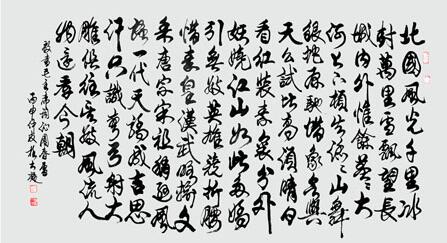 北國風光千里冰
封萬里雪飄望長
城内外惟餘莽々大
河上下頓失滔々山舞
銀蛇原馳蠟象欲與
天公試比高須晴日
看紅裝素裹分外
妖嬈江山如此多嬌
引無數英雄競折腰
惜秦皇漢武略輸文
采唐宗宋祖稍遜風
騷一代天驕成吉思
汗只識彎弓射大
雕俱往矣數風流人
物還看今朝
敬書毛主席詞沁園春雪
丙申仲夏